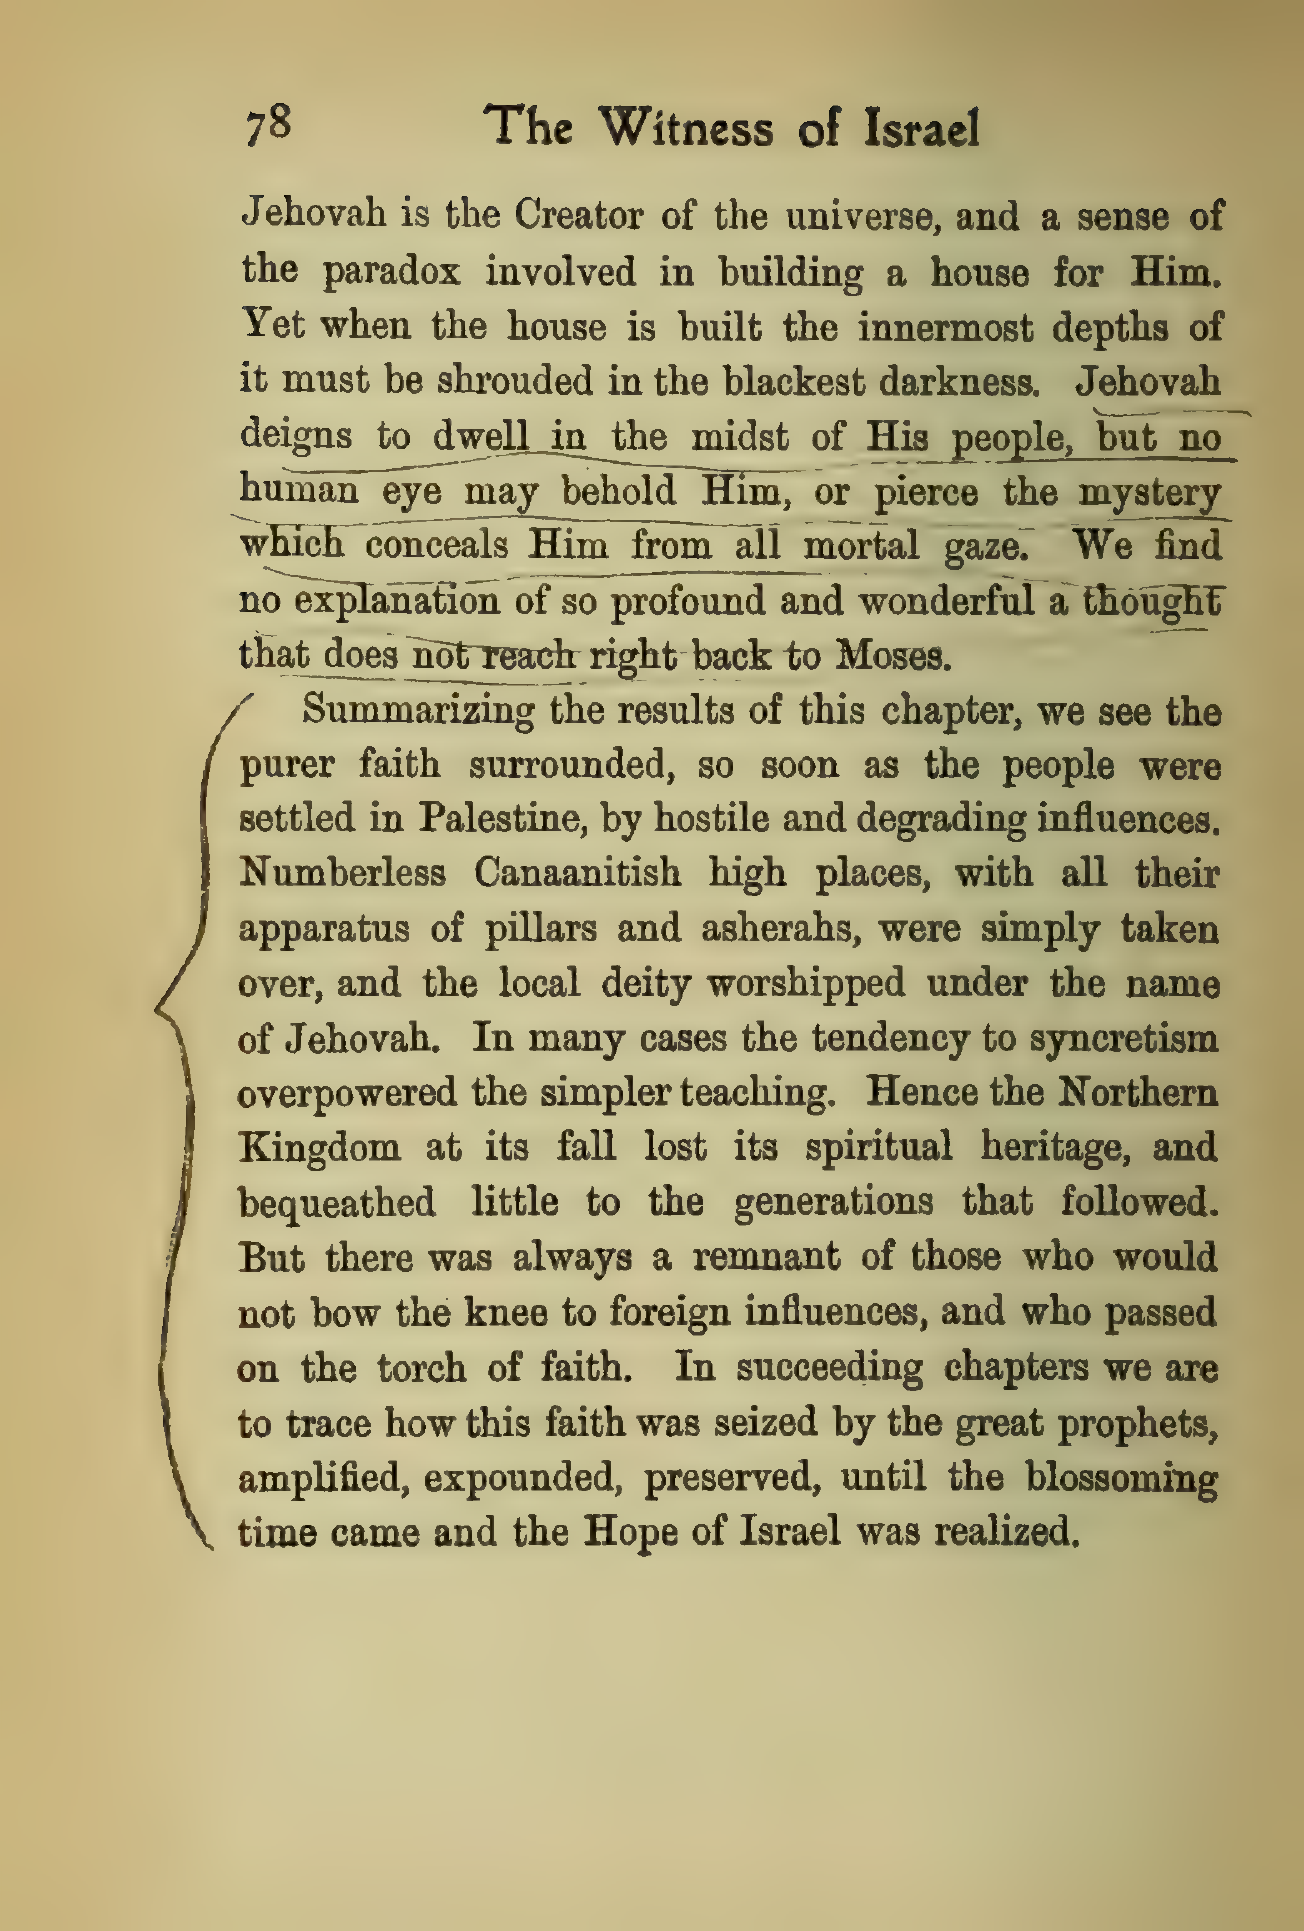 78 The Witness of Israel
Jehovah is the Creator of the universe, and a sense of
the paradox involved in building a house for Him.
Yet when the house is built the innermost depths of
it must be shrouded in the blackest darkness. Jehovah
deigns to dwell in the midst of His people, but no
human eye may behold Him, or pierce the mystery
which conceals Him from all mortal gaze. We find
no explanation of so profound and wonderful a thought
that does not reach right back to Moses.
Summarizing the results of this chapter, we see the
purer faith surrounded, so soon as the people were
settled in Palestine, by hostile and degrading influences.
Numberless Canaanitish high places, with all their
apparatus of pillars and asherahs, were simply taken
over, and the local deity worshipped under the name
of Jehovah. In many cases the tendency to syncretism
overpowered the simpler teaching. Hence the Northern
Kingdom at its fall lost its spiritual heritage, and
bequeathed little to the generations that followed.
But there was always a remnant of those who would
not bow the knee to foreign influences, and who passed
on the torch of faith. In succeeding chapters we are
to trace how this faith was seized by the great prophets,
amplified, expounded, preserved, until the blossoming
time came and the Hope of Israel was realized.